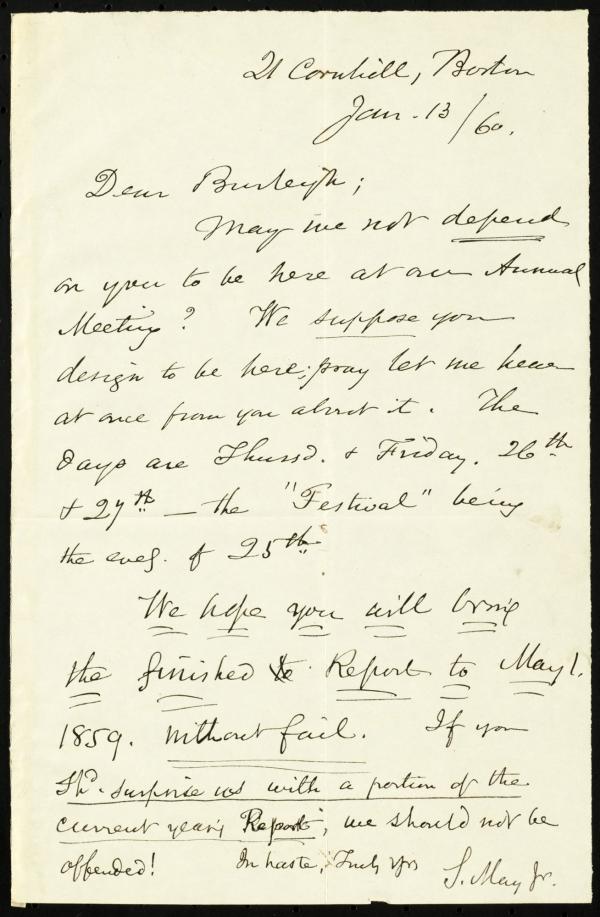 21 Cornhill, Boston
Jan. 13/60.
Dear Burleigh;
May we not depend
on you to be here at our Annual
Meeting? We suppose you
design to be here; pray let me hear
at once from you about it. The
days are Thursd. & Friday. 26th
& 27th — the "Festival" being
the eveg. of 25th.
We hope you will bring
the finished Report to May 1.
1859. without fail. If you
Shd. surprise us with a portion of the
current year's Report, we should not be
offended! In haste, Truly yrs
S. May Jr.